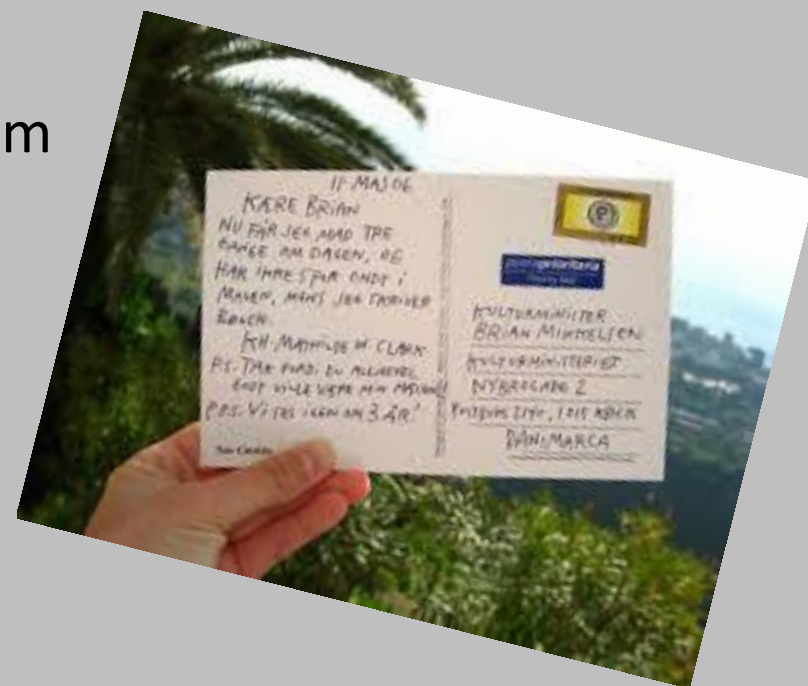 m
11 MAJ 06
KÆRE BRIAN
NU FÅR JEG MAD TRE
GANGE OM DAGEN, OG
HAR IKKE SPOR ONDT I
MAVEN, MENS JEG SKRIVER
KH. MATHILDE W. CLARK
P.S. TAK FORDI DU ALLIGEVEL
GODT VILLE VÆRE MIN
P.P.S. VI SES IGEN OM 3 ÅR!
postaprioritaria
KULTURMINISTER
BRIAN MIKKELSEN
KULTURMINISTERIET
NYBROGADE 2
DANIMARCA